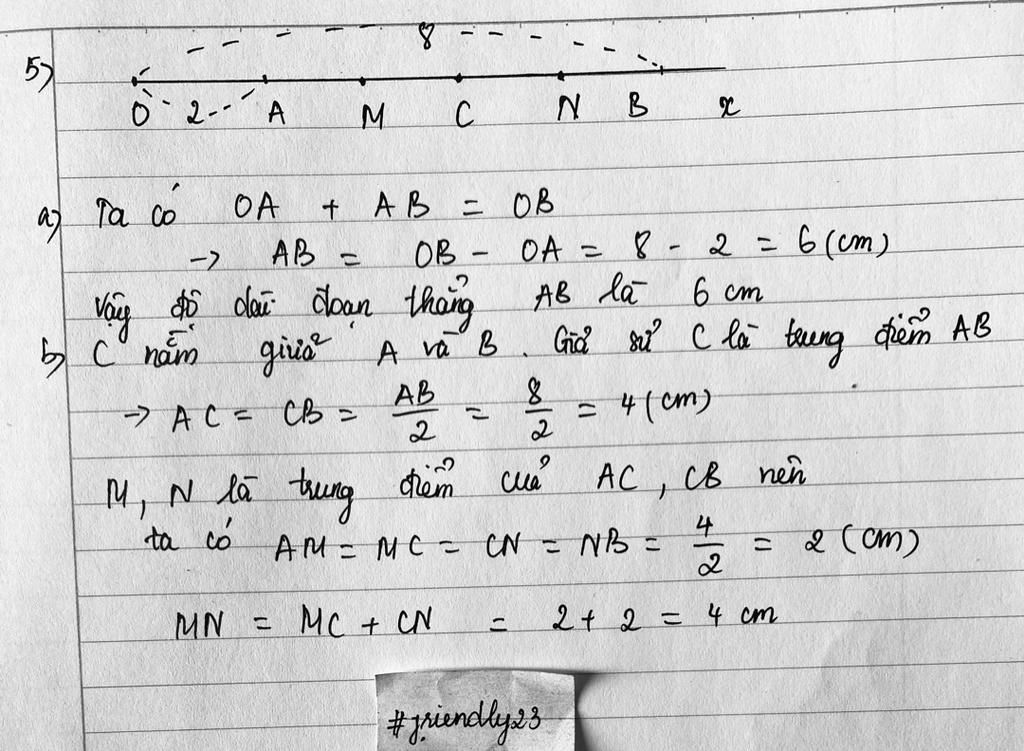 8
5)
O 2 A M C N B x
a) Ta có OA + AB = OB
-> AB = OB - OA = 8 - 2 = 6 (cm)
Vậy độ dài đoạn thẳng AB là 6 cm
b) C nằm giữa A và B. Giả sử C là trung điểm AB
-> AC = CB = AB/2 = 8/2 = 4 (cm)
M, N là trung điểm của AC, CB nên
ta có AM = MC = CN = NB = 4/2 = 2 (cm)
MN = MC + CN = 2 + 2 = 4 cm
#friendly23